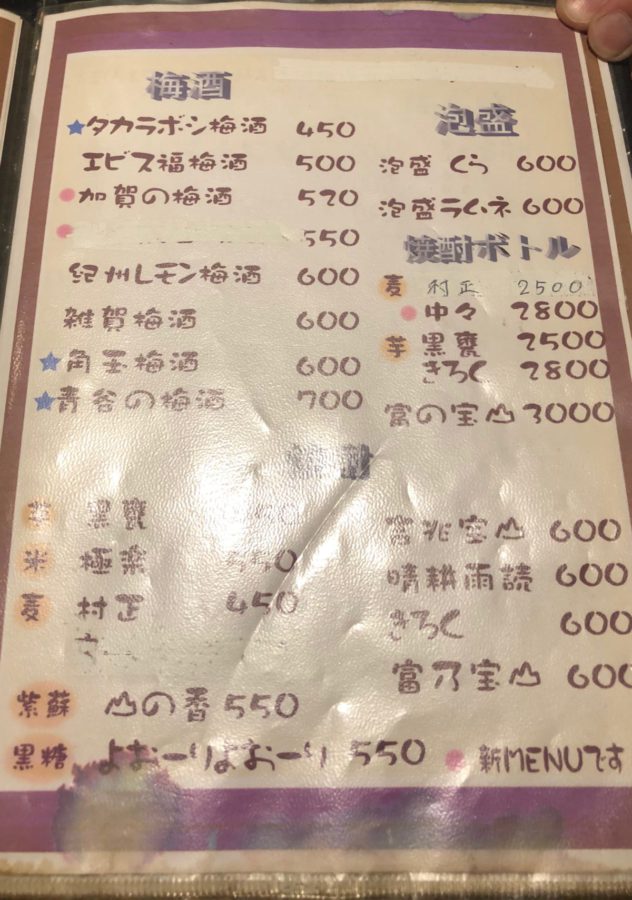 梅酒
★タカラボシ梅酒 450
エビス福梅酒 500
加賀の梅酒 520
550
紀州レモン梅酒 600
雑賀梅酒 600
★角玉梅酒 600
★青谷の梅酒 700
泡盛
泡盛 くら 600
泡盛ラムネ 600
焼酎ボトル
麦 村正 2500
中々 2800
芋 黒甕 2500
きろく 2800
富の宝山 3000
芋 黒甕
米 極楽 550
麦 村正 450
紫蘇 山の香 550
黒糖 よおーりよおーり 550
吉兆宝山 600
晴耕雨読 600
きろく 600
富乃宝山 600
新MENUです